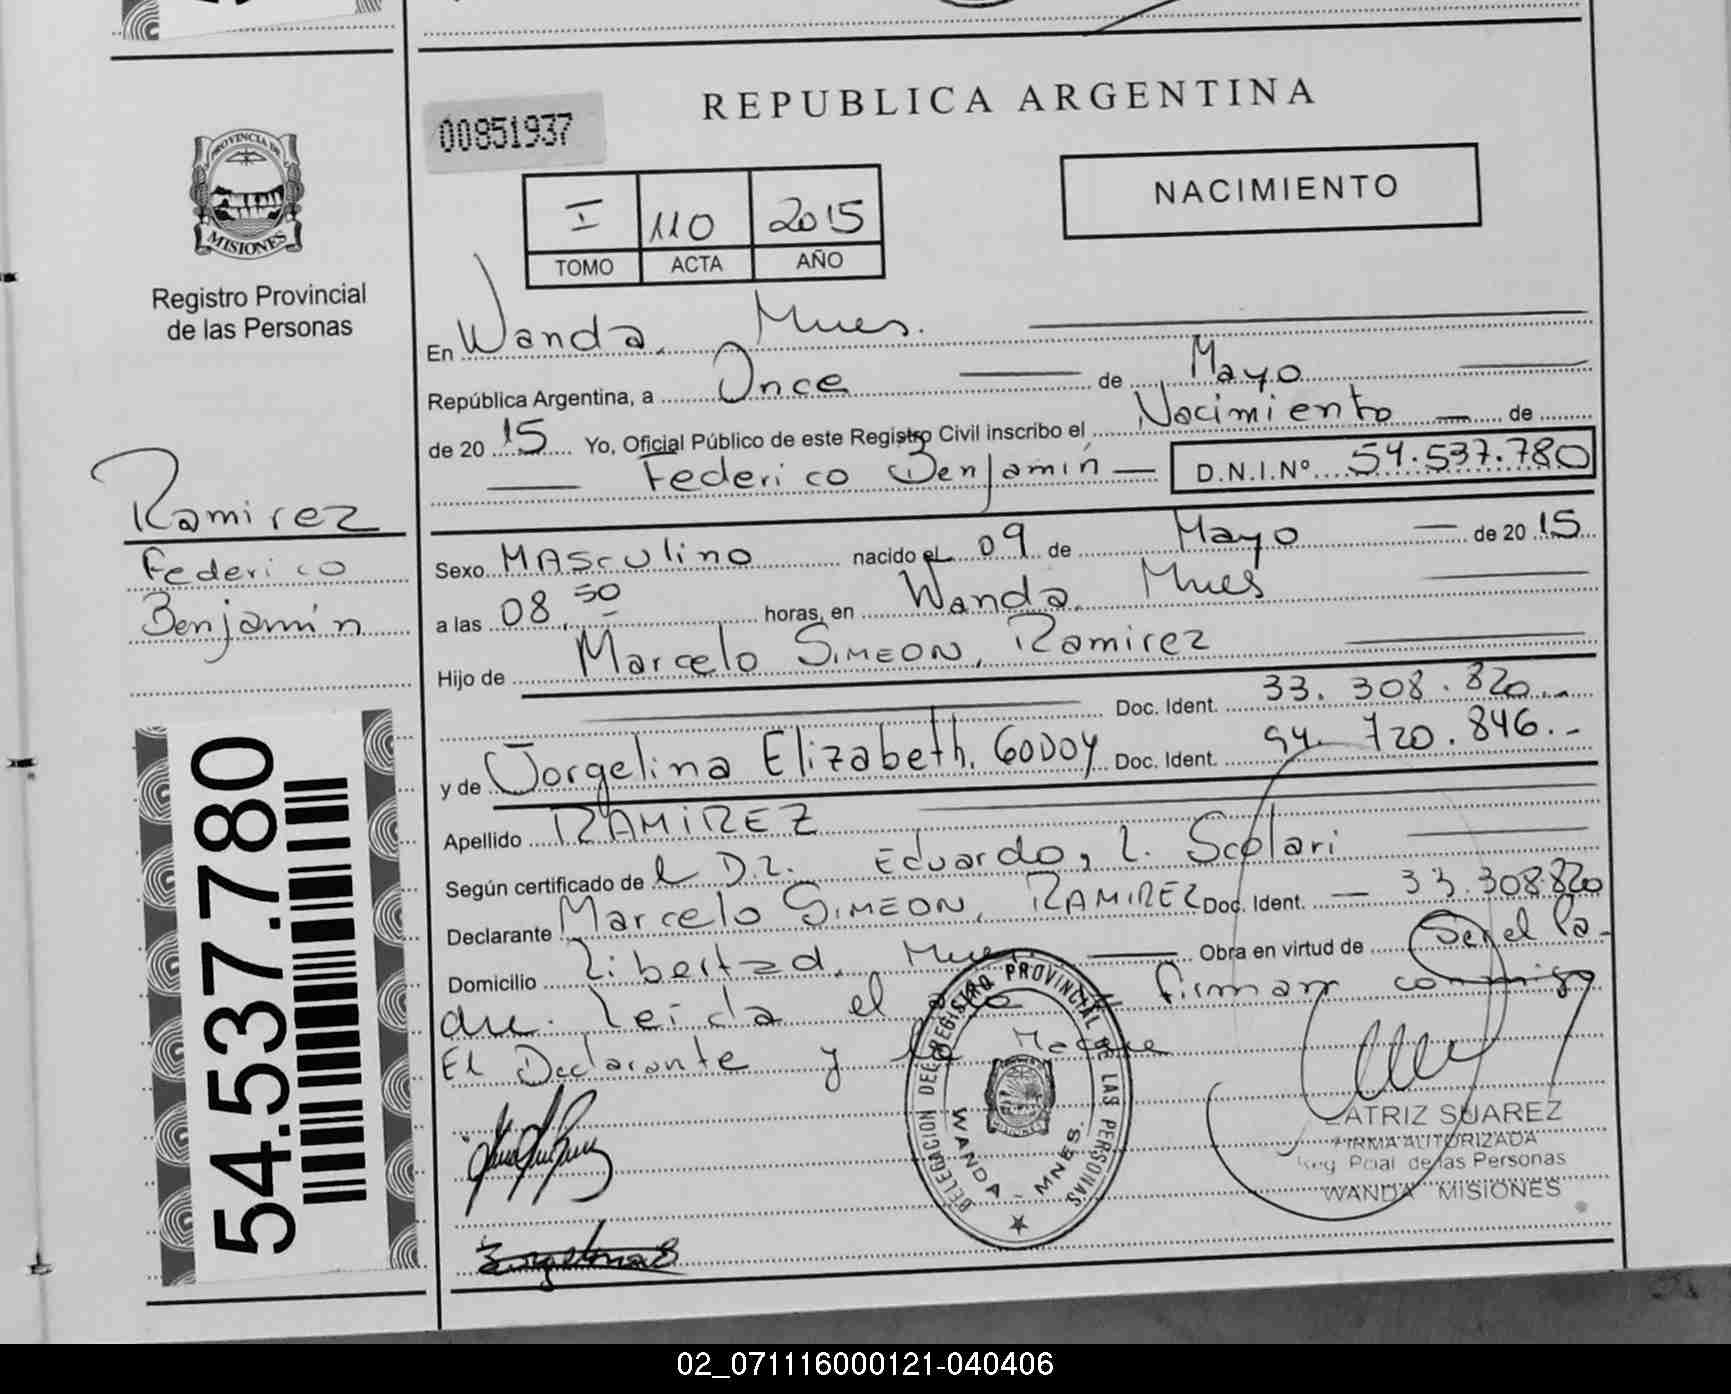 REPUBLICA ARGENTINA
00851937
NACIMIENTO
I 110 2015
TOMO ACTA AÑO
PROVINCIA DE
MISIONES
Registro Provincial
de las Personas
Ramirez
Federico
Benjamín
54.537.780
En Wanda, Mnes.
República Argentina, a Once de Mayo
de 2015 Yo, Oficial Público de este Registro Civil inscribo el Nacimiento de
Federico Benjamín D.N.I.Nº 54.537.780
Sexo MAsculino nacido el 09 de Mayo de 2015
a las 08,50 horas, en Wanda, Mnes
Hijo de Marcelo SIMEON, Ramirez
Doc. Ident. 33.308.820
y de Jorgelina Elizabeth, GODOY Doc. Ident. 94.720.846.-
Apellido RAMIREZ
Según certificado de Eduardo, Scolari
Declarante Marcelo SIMEON, RAMIREZ Doc. Ident. 33.308.820
Domicilio Libertad, Mnes Obra en virtud de Ser el Pa-
dre. Leida el firman conmigo
El Declarante y la Madre
DELEGACION DEL REGISTRO PROVINCIAL DE LAS PERSONAS
WANDA - MNES.
MISIONES
ATRIZ SUAREZ
FIRMA AUTORIZADA
Reg Pcial de las Personas
WANDA MISIONES
02_071116000121-040406